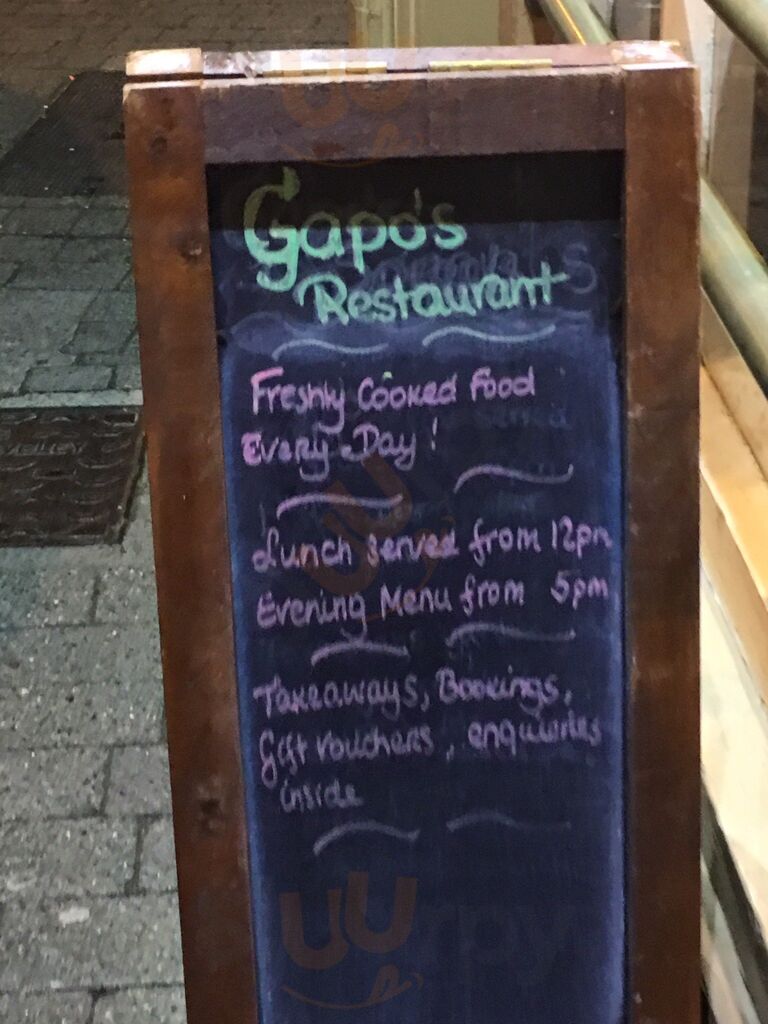 Gapo's
Restaurant
Freshly Cooked Food
Every Day!
Lunch served from 12pm
Evening Menu from 5pm
Takeaways, Bookings,
Gift vouchers, enquieries
inside